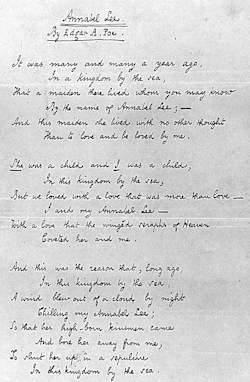 Annabel Lee.
By Edgar A. Poe.
It was many and many a year ago,
In a kingdom by the sea,
That a maiden there lived whom you may know
By the name of Annabel Lee; —
And this maiden she lived with no other thought
Than to love and be loved by me.
She was a child and I was a child,
In this kingdom by the sea,
But we loved with a love that was more than love —
I and my Annabel Lee —
With a love that the wingéd seraphs of Heaven
Coveted her and me.
And this was the reason that, long ago,
In this kingdom by the sea,
A wind blew out of a cloud by night
Chilling my Annabel Lee;
So that her high-born kinsmen came
And bore her away from me,
To shut her up, in a sepulchre
In this kingdom by the sea.